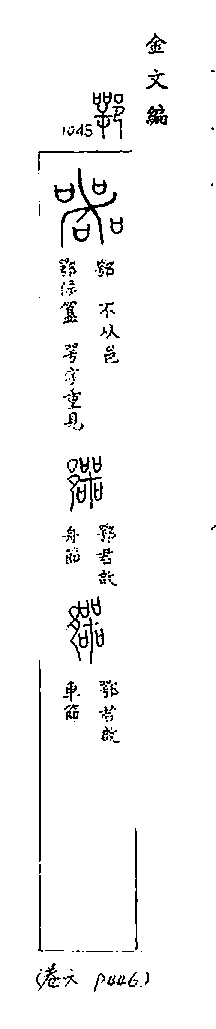 金文編
1045
鄂 不从邑
鄂侯簋 咢字重見
鄂君啟
舟節
鄂君啟
車節
(卷六 P446.)